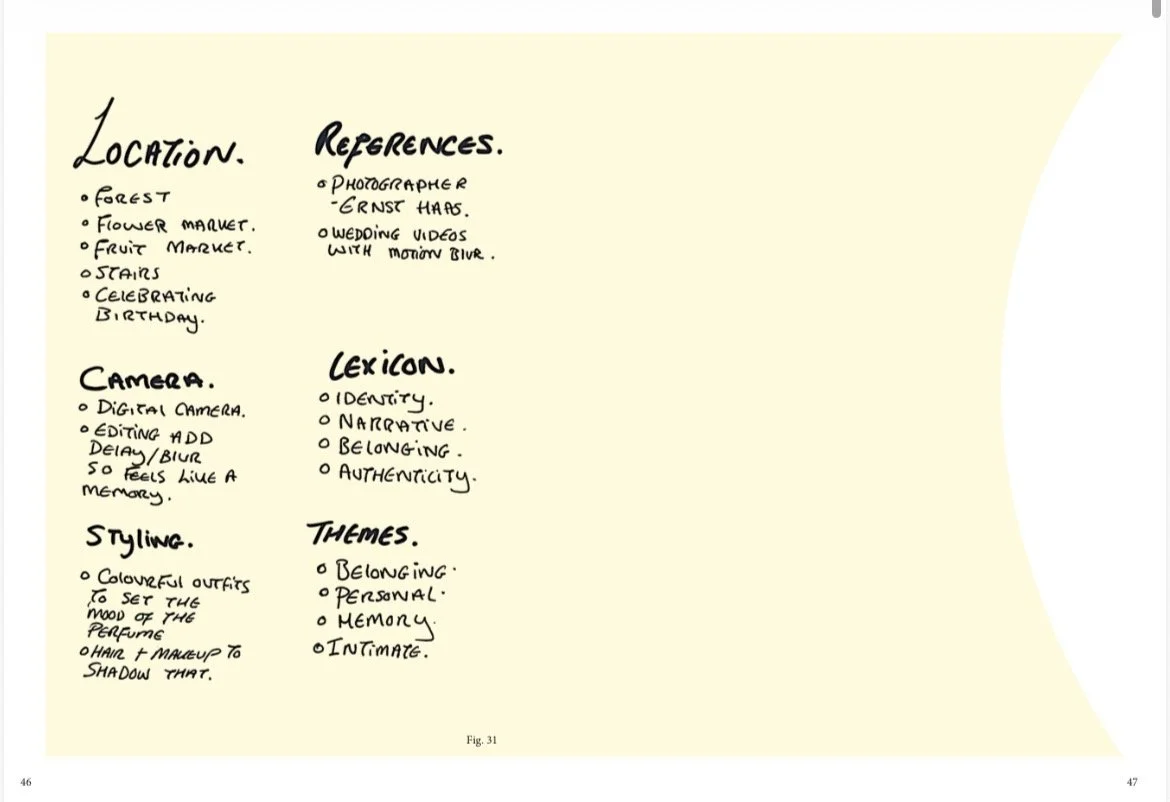 LOCATION.
• FOREST
• FLOWER MARKET.
• FRUIT MARKET.
• STAIRS
• CELEBRATING
BIRTHDAY.
CAMERA.
• DIGITAL CAMERA.
• EDITING ADD
DELAY/BLUR
SO FEELS LIKE A
MEMORY.
STYLING.
• COLOURFUL OUTFITS
TO SET THE
MOOD OF THE
PERFUME
• HAIR + MAKEUP TO
SHADOW THAT.
REFERENCES.
• PHOTOGRAPHER
-ERNST HAAS.
• WEDDING VIDEOS
WITH MOTION BLUR.
LEXICON.
• IDENTITY.
• NARRATIVE.
• BELONGING.
• AUTHENTICITY.
THEMES.
• BELONGING.
• PERSONAL.
• MEMORY.
• INTIMATE.
Fig. 31
46
47